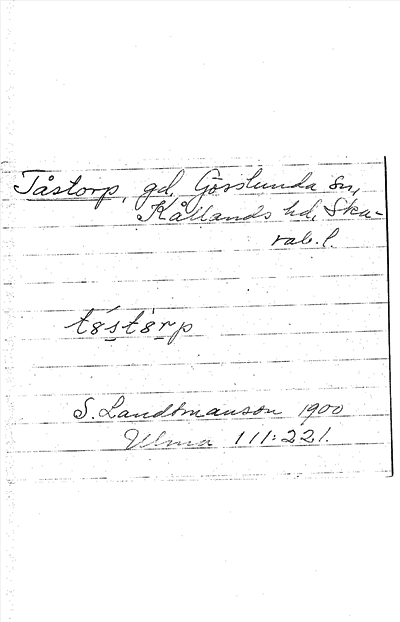 Tåstorp, gd, Gösslunda sn,
Kållands hd, Ska-
rab. l.
tɞ́stɞ̀rp
S. Landtmanson 1900
Ulma 111:221.